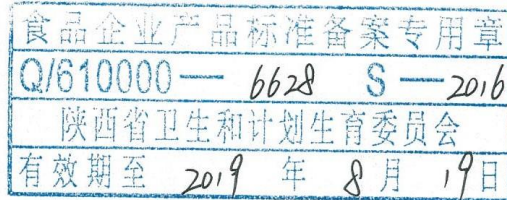 食品企业产品标准备案专用章
Q/610000— 6628 S —2016
陕西省卫生和计划生育委员会
有效期至 2019 年 8 月 19 日